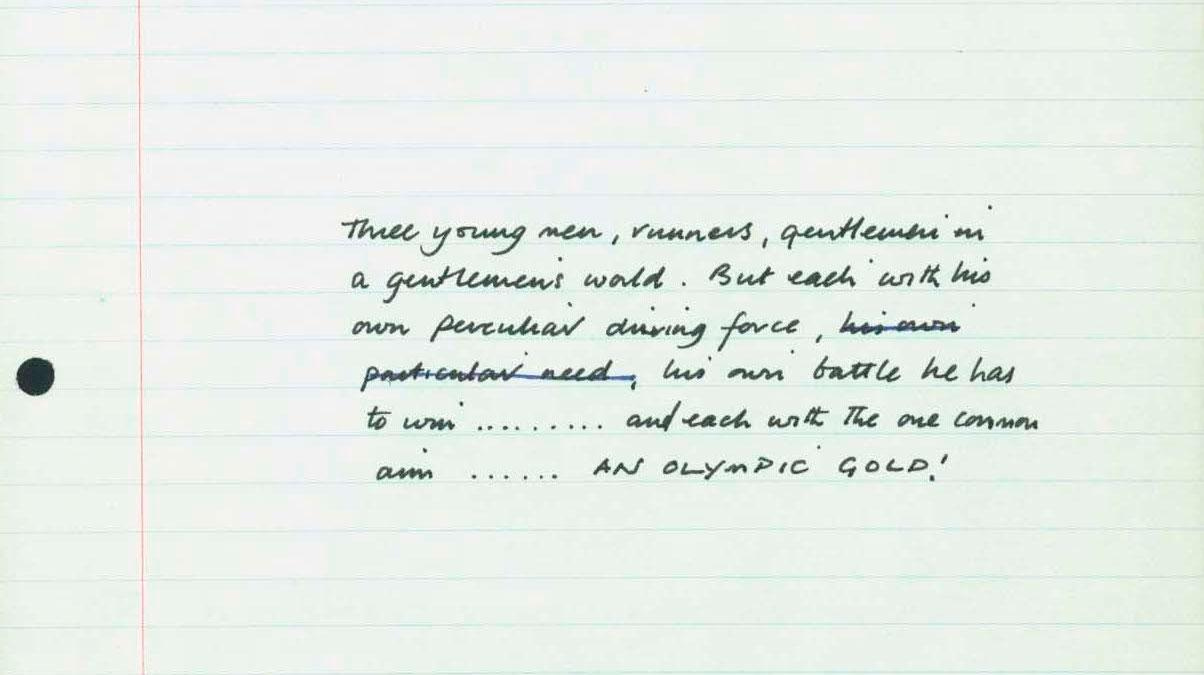 Three young men, runners, gentlemen in
a gentlemen's world. But each with his
own peculiar driving force, his own
particular need, his own battle he has
to win ......... and each with the one common
aim ...... AN OLYMPIC GOLD!